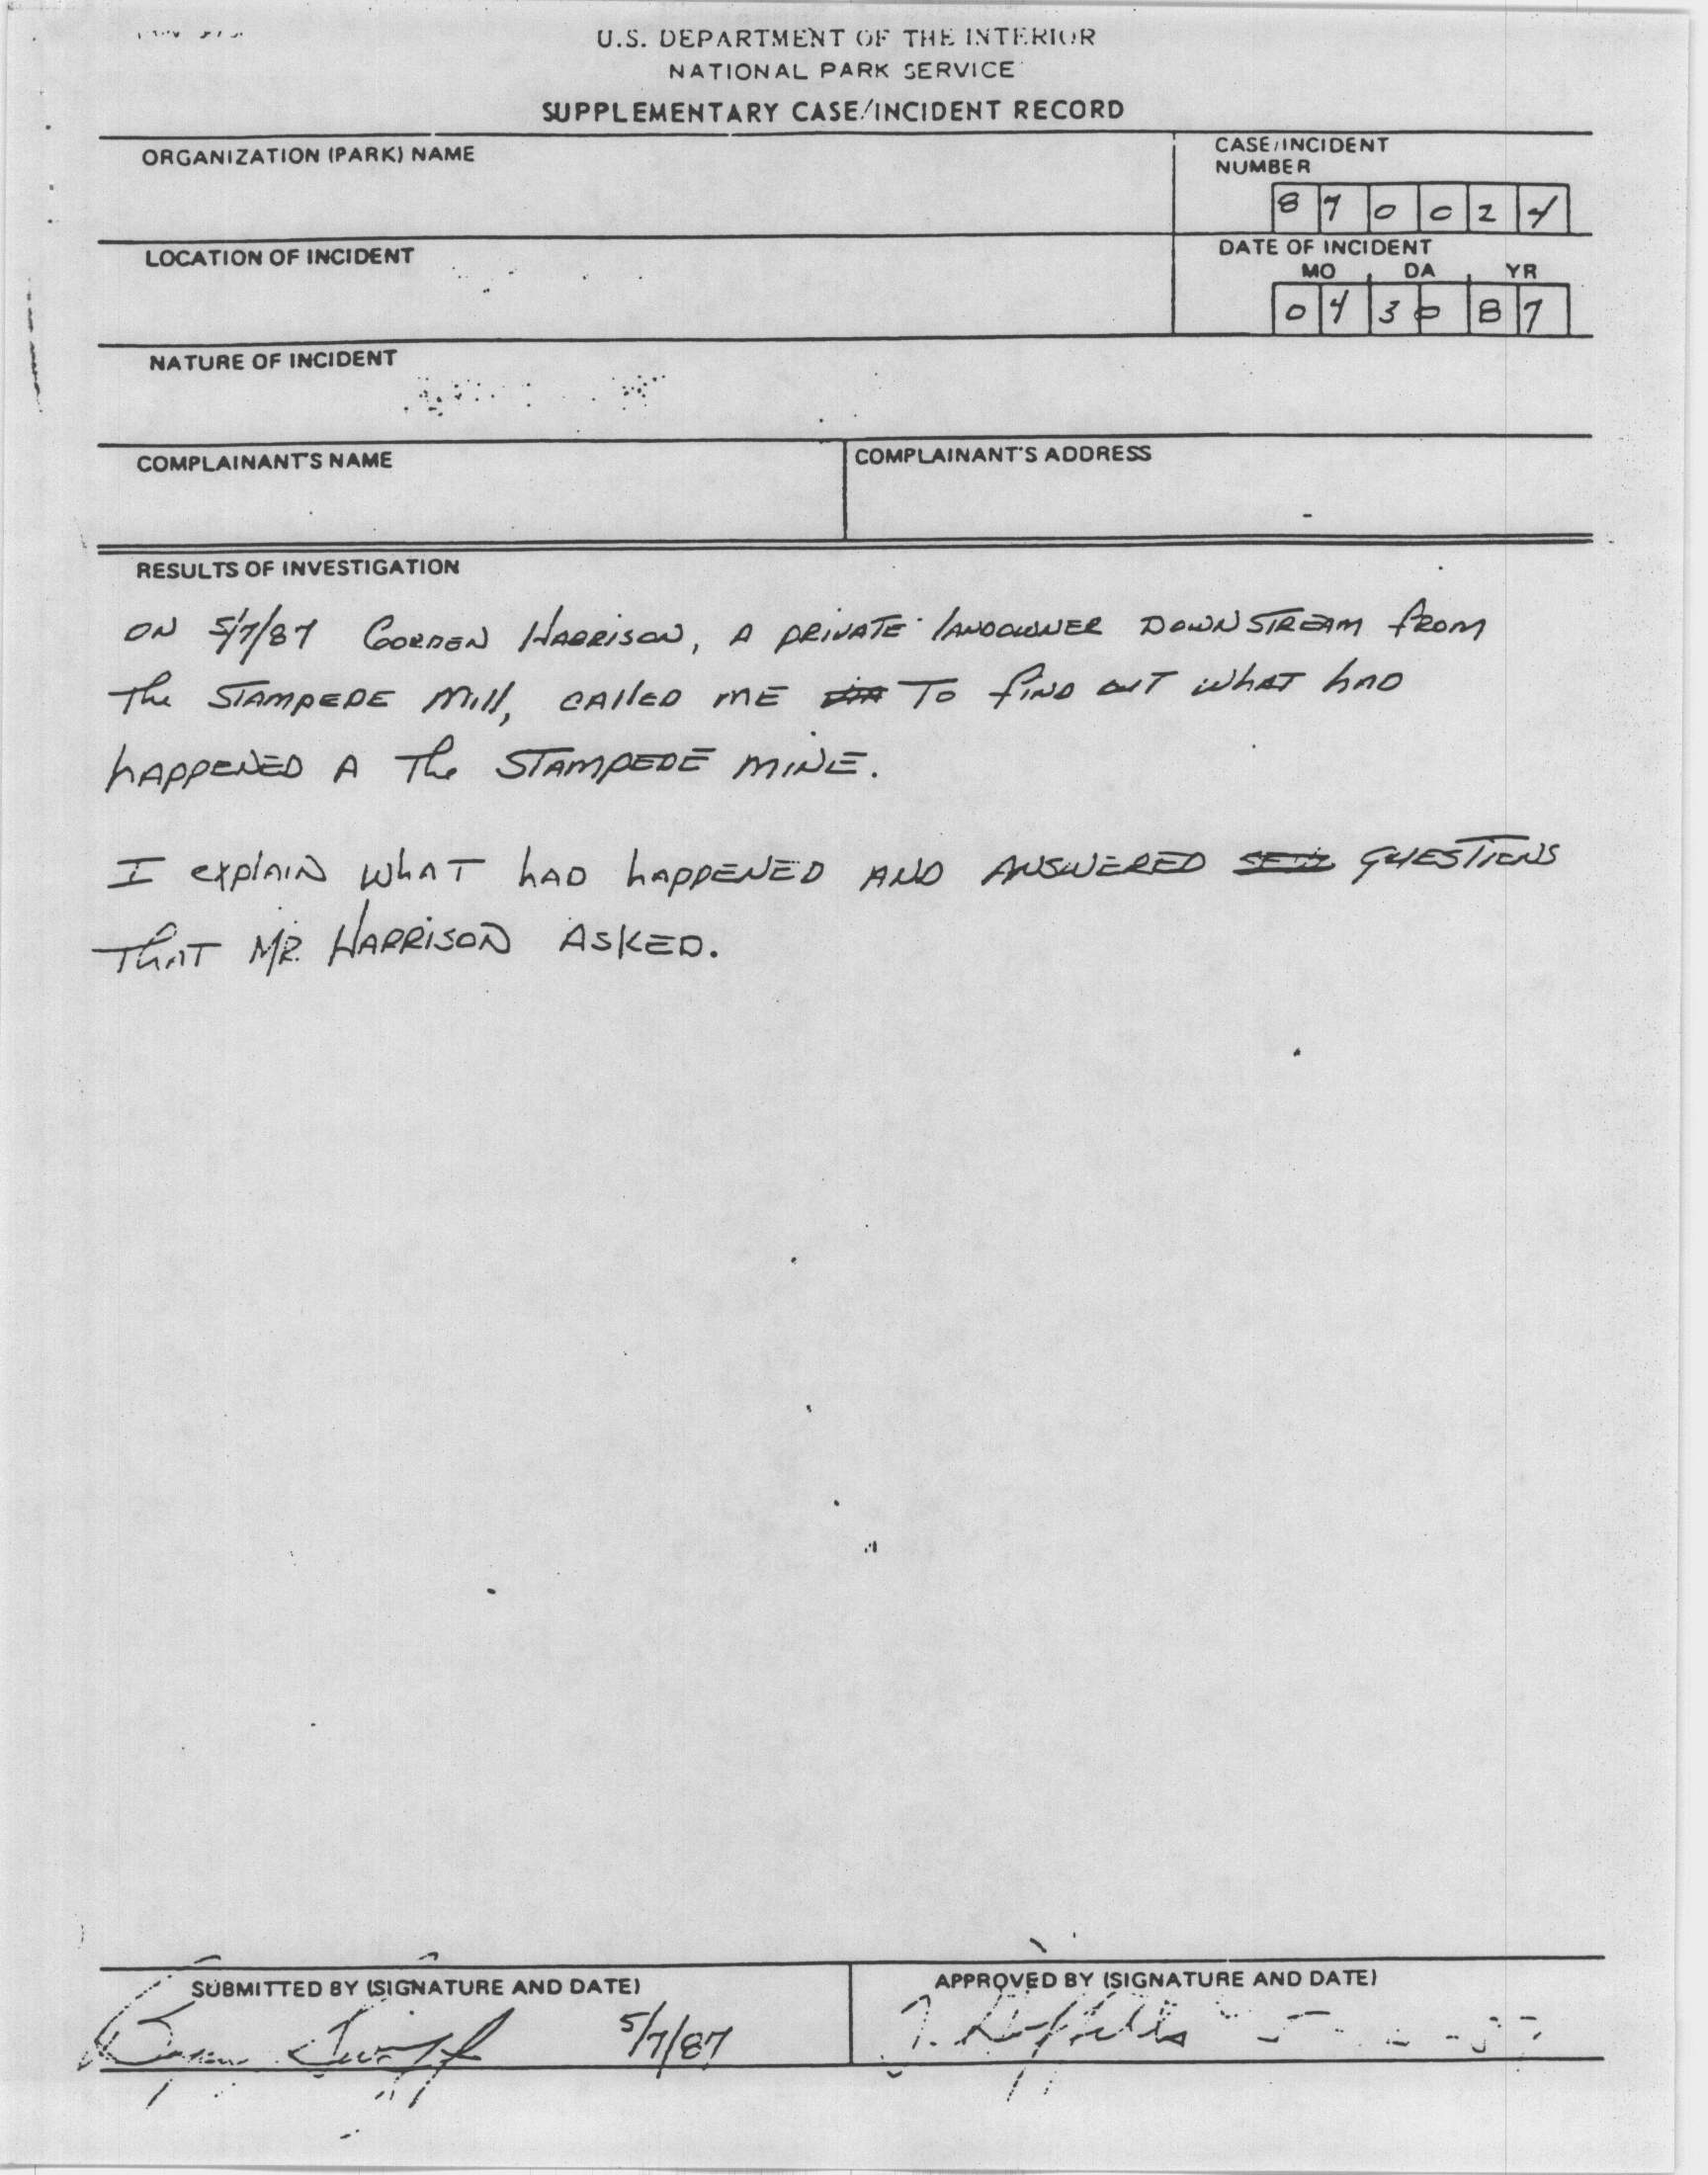 U.S. DEPARTMENT OF THE INTERIOR
NATIONAL PARK SERVICE
SUPPLEMENTARY CASE/INCIDENT RECORD
ORGANIZATION (PARK) NAME
CASE/INCIDENT
NUMBER
8 7 0 0 2 4
LOCATION OF INCIDENT
DATE OF INCIDENT
MO DA YR
0 4 3 0 8 7
NATURE OF INCIDENT
COMPLAINANT'S NAME
COMPLAINANT'S ADDRESS
RESULTS OF INVESTIGATION
ON 5/7/87 GORDEN HARRISON, A PRIVATE LANDOWNER DOWNSTREAM FROM
The STAMPEDE Mill, CAllED ME TO FIND OUT WHAT hAD
hAPPENED A The STAMPEDE MINE.
I explAIN WhAT hAD hAPPENED AND ANSWERED QUESTIONS
ThAT MR. HARRISON ASKED.
SUBMITTED BY (SIGNATURE AND DATE)
5/7/87
APPROVED BY (SIGNATURE AND DATE)